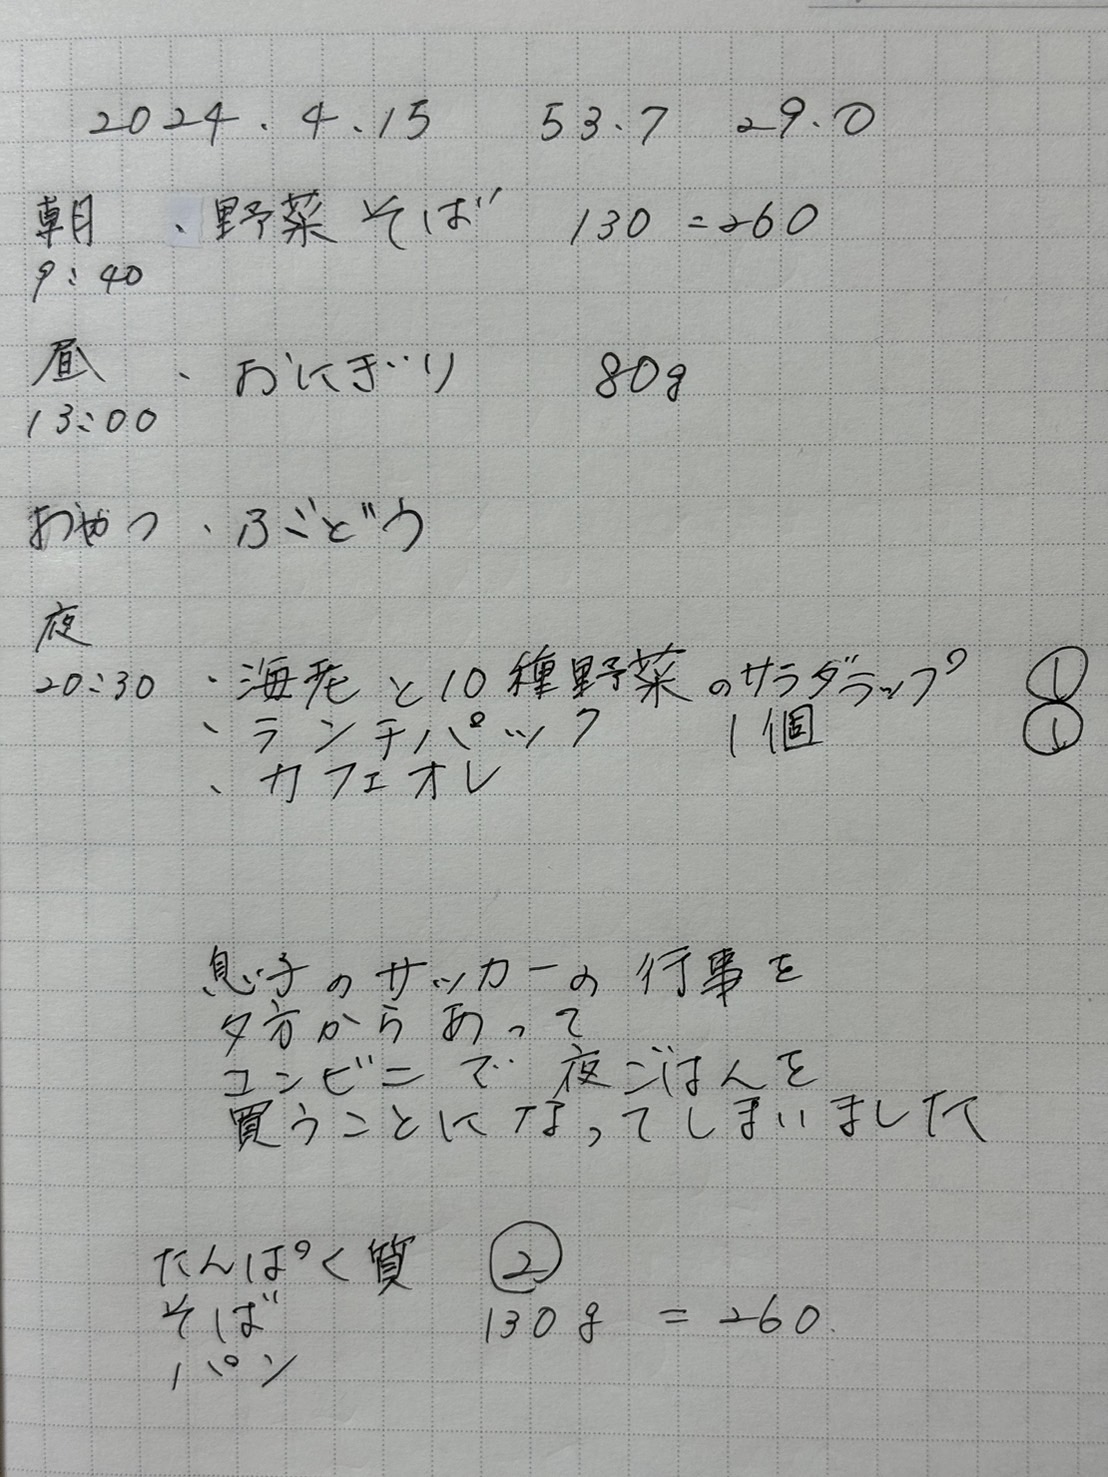 2024.4.15 53.7 29.0
朝 、野菜そば 130 =260
9:40
昼 、おにぎり 80g
13:00
おやつ 、ぶどう
夜
20:30 、海老と10種野菜のサラダラップ ①
、ランチパック 1個 ①
、カフェオレ
息子のサッカーの行事を
夕方からあって
コンビニで夜ごはんを
買うことになってしまいました
たんぱく質 ②
そば 130g = 260.
パン